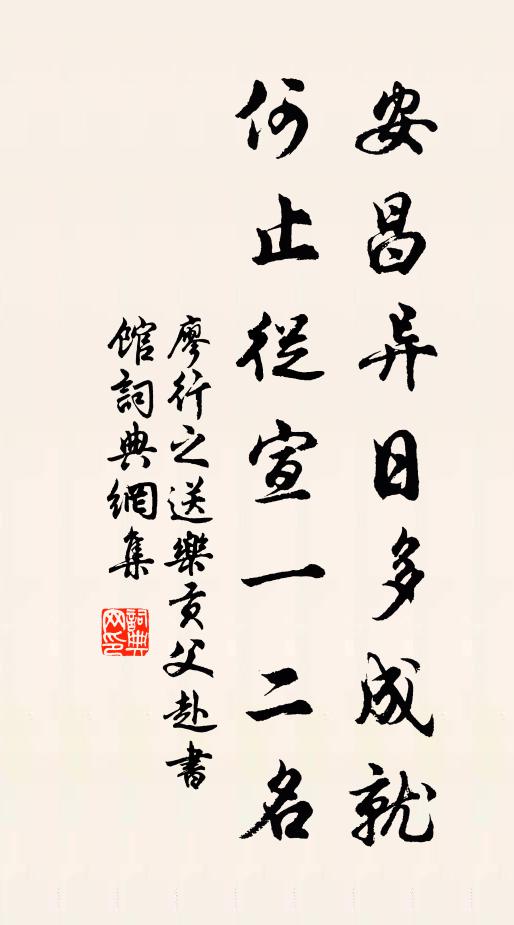 安昌异日多成就
何止從宣一二名
廖行之送樂貢父赴書
館詞典網集
詞典網印